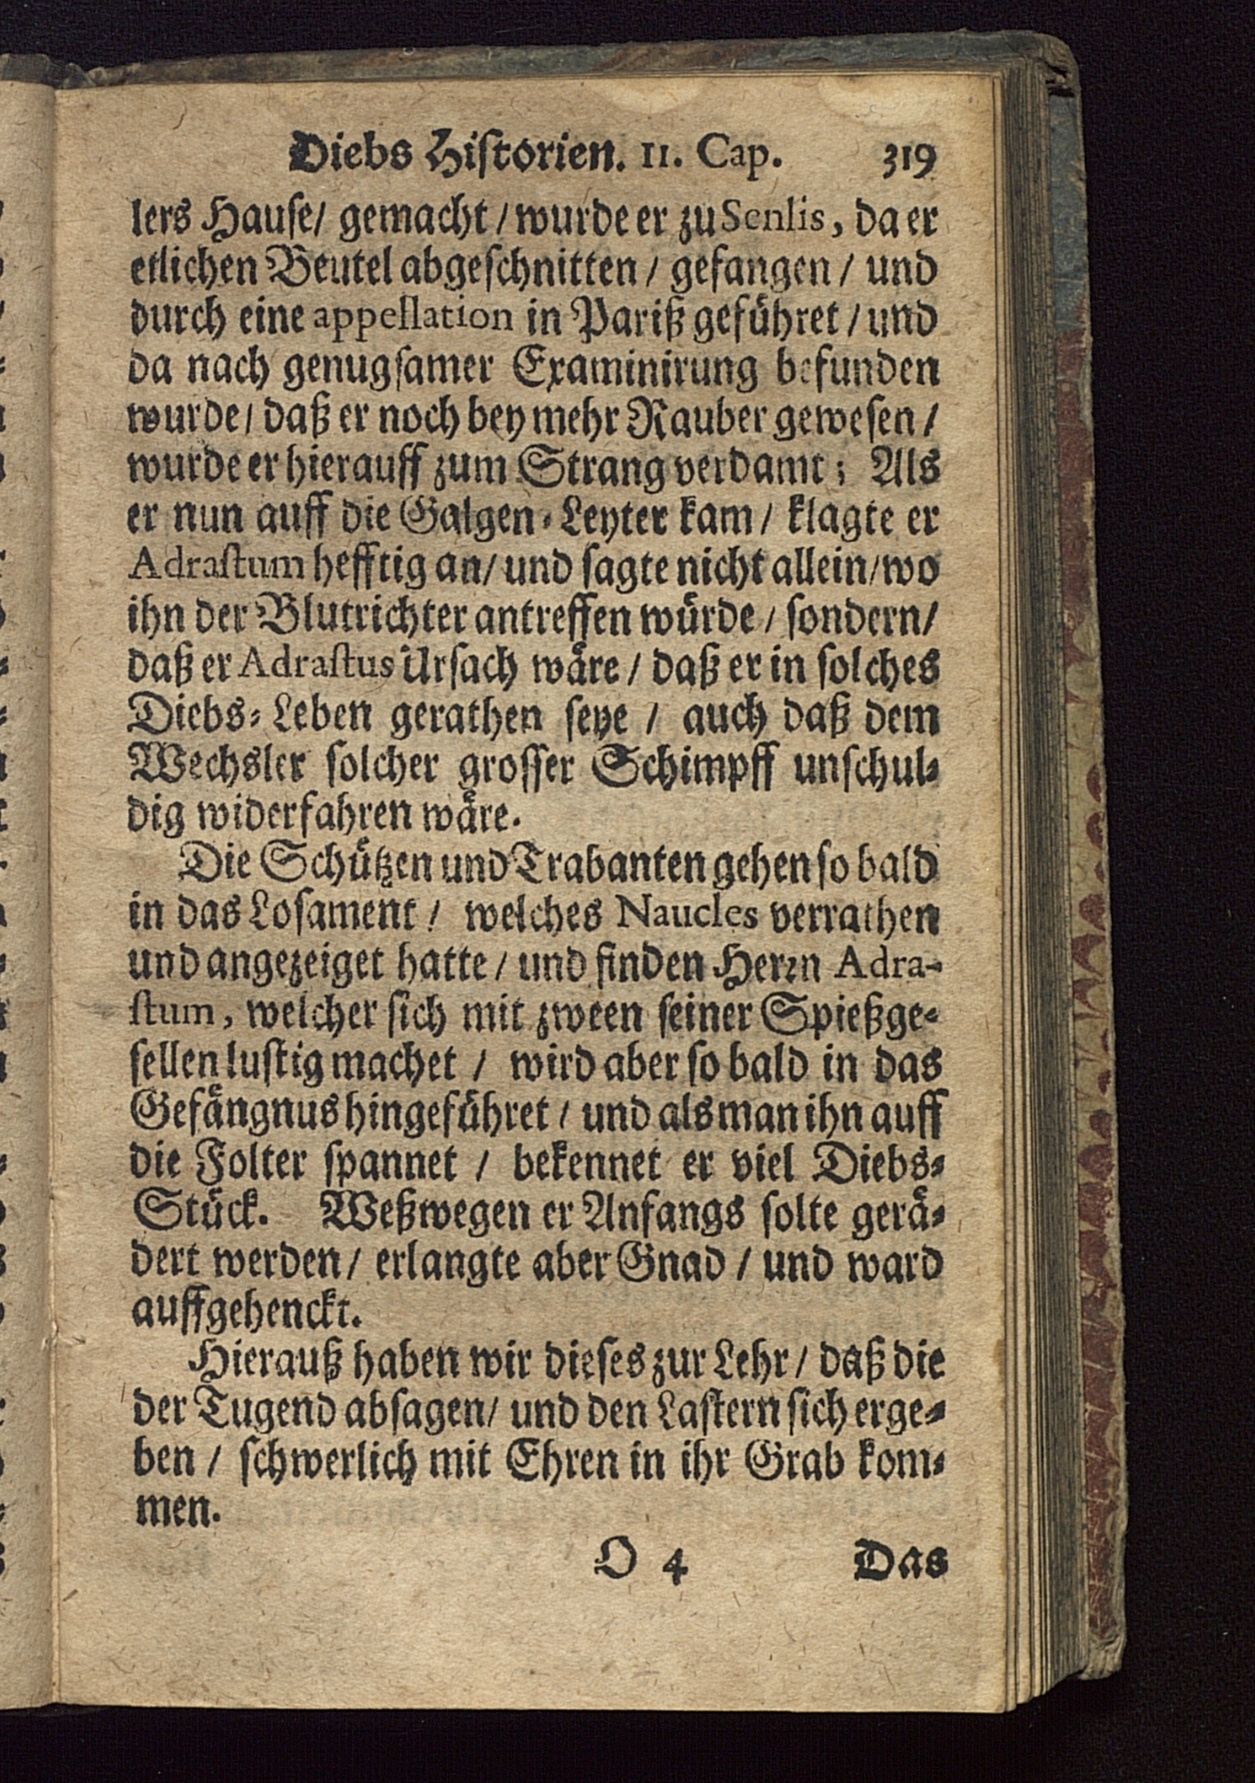 Diebs Historien. 11. Cap. 319
lers Hause/ gemacht / wurde er zu Senlis, da er
etlichen Beutel abgeschnitten / gefangen / und
durch eine appellation in Pariß geführet / und
da nach genugsamer Examinirung befunden
wurde / daß er noch bey mehr Rauber gewesen /
wurde er hierauff zum Strang verdamt; Als
er nun auff die Galgen-Leyter kam / klagte er
Adrastum hefftig an/ und sagte nicht allein/wo
ihn der Blutrichter antreffen würde / sondern/
daß er Adrastus Ursach wäre / daß er in solches
Diebs-Leben gerathen seye / auch daß dem
Wechsler solcher grosser Schimpff unschul-
dig widerfahren wäre.
Die Schützen und Trabanten gehen so bald
in das Losament / welches Naucles verrathen
und angezeiget hatte / und finden Herrn Adra-
stum, welcher sich mit zween seiner Spießge-
sellen lustig machet / wird aber so bald in das
Gefängnus hingeführet / und als man ihn auff
die Folter spannet / bekennet er viel Diebs-
Stück. Weßwegen er Anfangs solte gerä-
dert werden / erlangte aber Gnad / und ward
auffgehenckt.
Hierauß haben wir dieses zur Lehr / daß die
der Tugend absagen/ und den Lastern sich erge-
ben / schwerlich mit Ehren in ihr Grab kom-
men.
O 4 Das